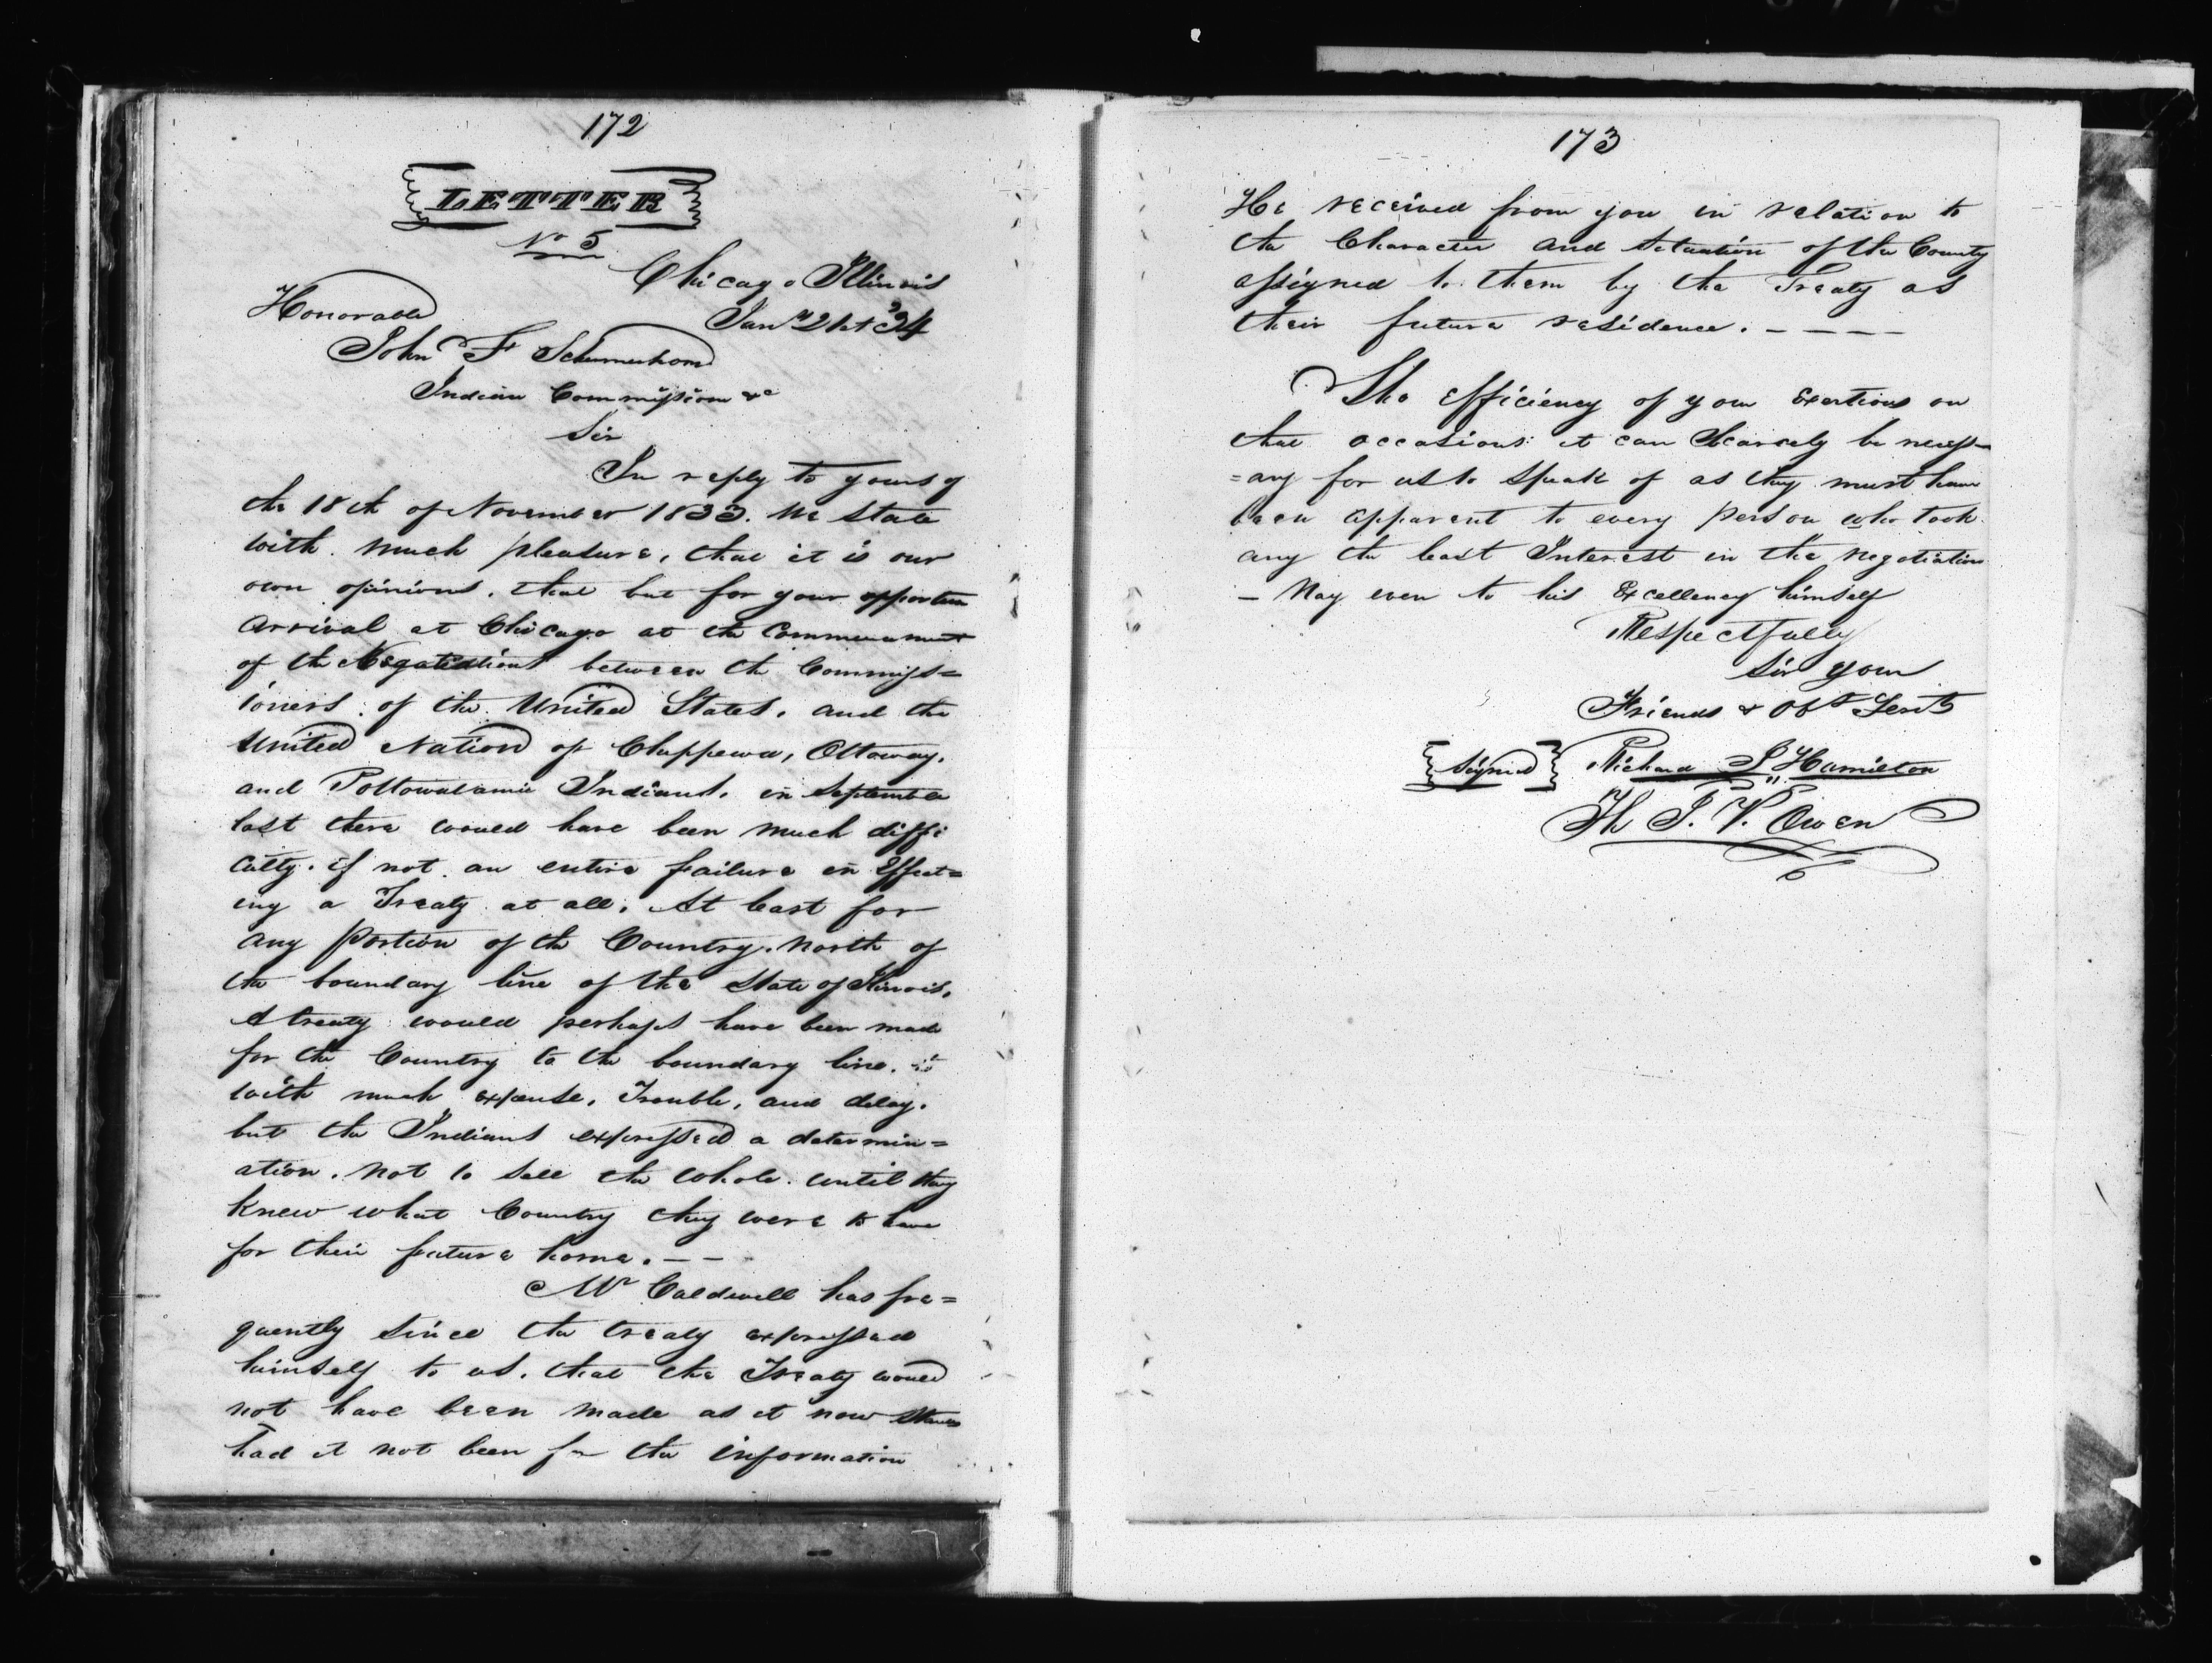 172
LETTER
No 5
Chicago Illinois
Jany 21st 34
Honorable
John F Schermerhorn
Indian Commission &c
Sir
In reply to yours of
the 18th of November 1833. We state
with much pleasure, that it is our
own opinions. that but for your opportune
arrival at Chicago at the Commencement
of the Negotiations between the Commiss=
ioners of the United States. and the
United Nation of Chippewa, Ottoway.
and Pottowatamie Indians. in September
last there would have been much diffi
culty. if not an entire failure in Effect=
ing a Treaty at all. At least for
any Portion of the Country. North of
the boundary line of the State of Illinois.
A treaty would perhaps have been made
for the Country to the boundary line.
with much expense. Trouble, and delay.
but the Indians expressed a determin=
ation. not to sell the whole. until they
knew what Country they were to have
for their future home. — —
Mr Caldwell has fre=
quently since the treaty expressed
himself to us. that the Treaty would
not have been made as it now stands
had it not been for the information
173
He received from you in relation to
the Character and Situation of the County
assigned to them by the Treaty as
their future residence. — — — —
The efficiency of your Exertions on
that occasions it can Scarcely be necess—
=ary for us to speak of as they must have
been apparent to every person who took
any the least Interest in the negotiation
— Nay even to his Excellency himself
Respectfully
Sir your
Friends & Obt Servts
Signed Richard J Hamilton
Th J. V. Owen